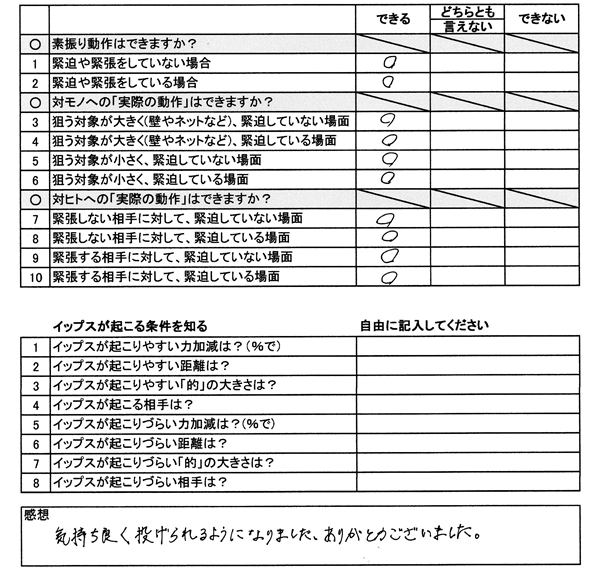 できる どちらとも言えない できない
○ 素振り動作はできますか？
1 緊迫や緊張をしていない場合 ○
2 緊迫や緊張をしている場合 ○
○ 対モノへの「実際の動作」はできますか？
3 狙う対象が大きく(壁やネットなど)、緊迫していない場面 ○
4 狙う対象が大きく(壁やネットなど)、緊迫している場面 ○
5 狙う対象が小さく、緊迫していない場面 ○
6 狙う対象が小さく、緊迫している場面 ○
○ 対ヒトへの「実際の動作」はできますか？
7 緊張しない相手に対して、緊迫していない場面 ○
8 緊張しない相手に対して、緊迫している場面 ○
9 緊張する相手に対して、緊迫していない場面 ○
10 緊張する相手に対して、緊迫している場面 ○
イップスが起こる条件を知る 自由に記入してください
1 イップスが起こりやすい力加減は？(％で)
2 イップスが起こりやすい距離は？
3 イップスが起こりやすい「的」の大きさは？
4 イップスが起こる相手は？
5 イップスが起こりづらい力加減は？(％で)
6 イップスが起こりづらい距離は？
7 イップスが起こりづらい「的」の大きさは？
8 イップスが起こりづらい相手は？
感想
気持ち良く投げられるようになりました、ありがとうございました。